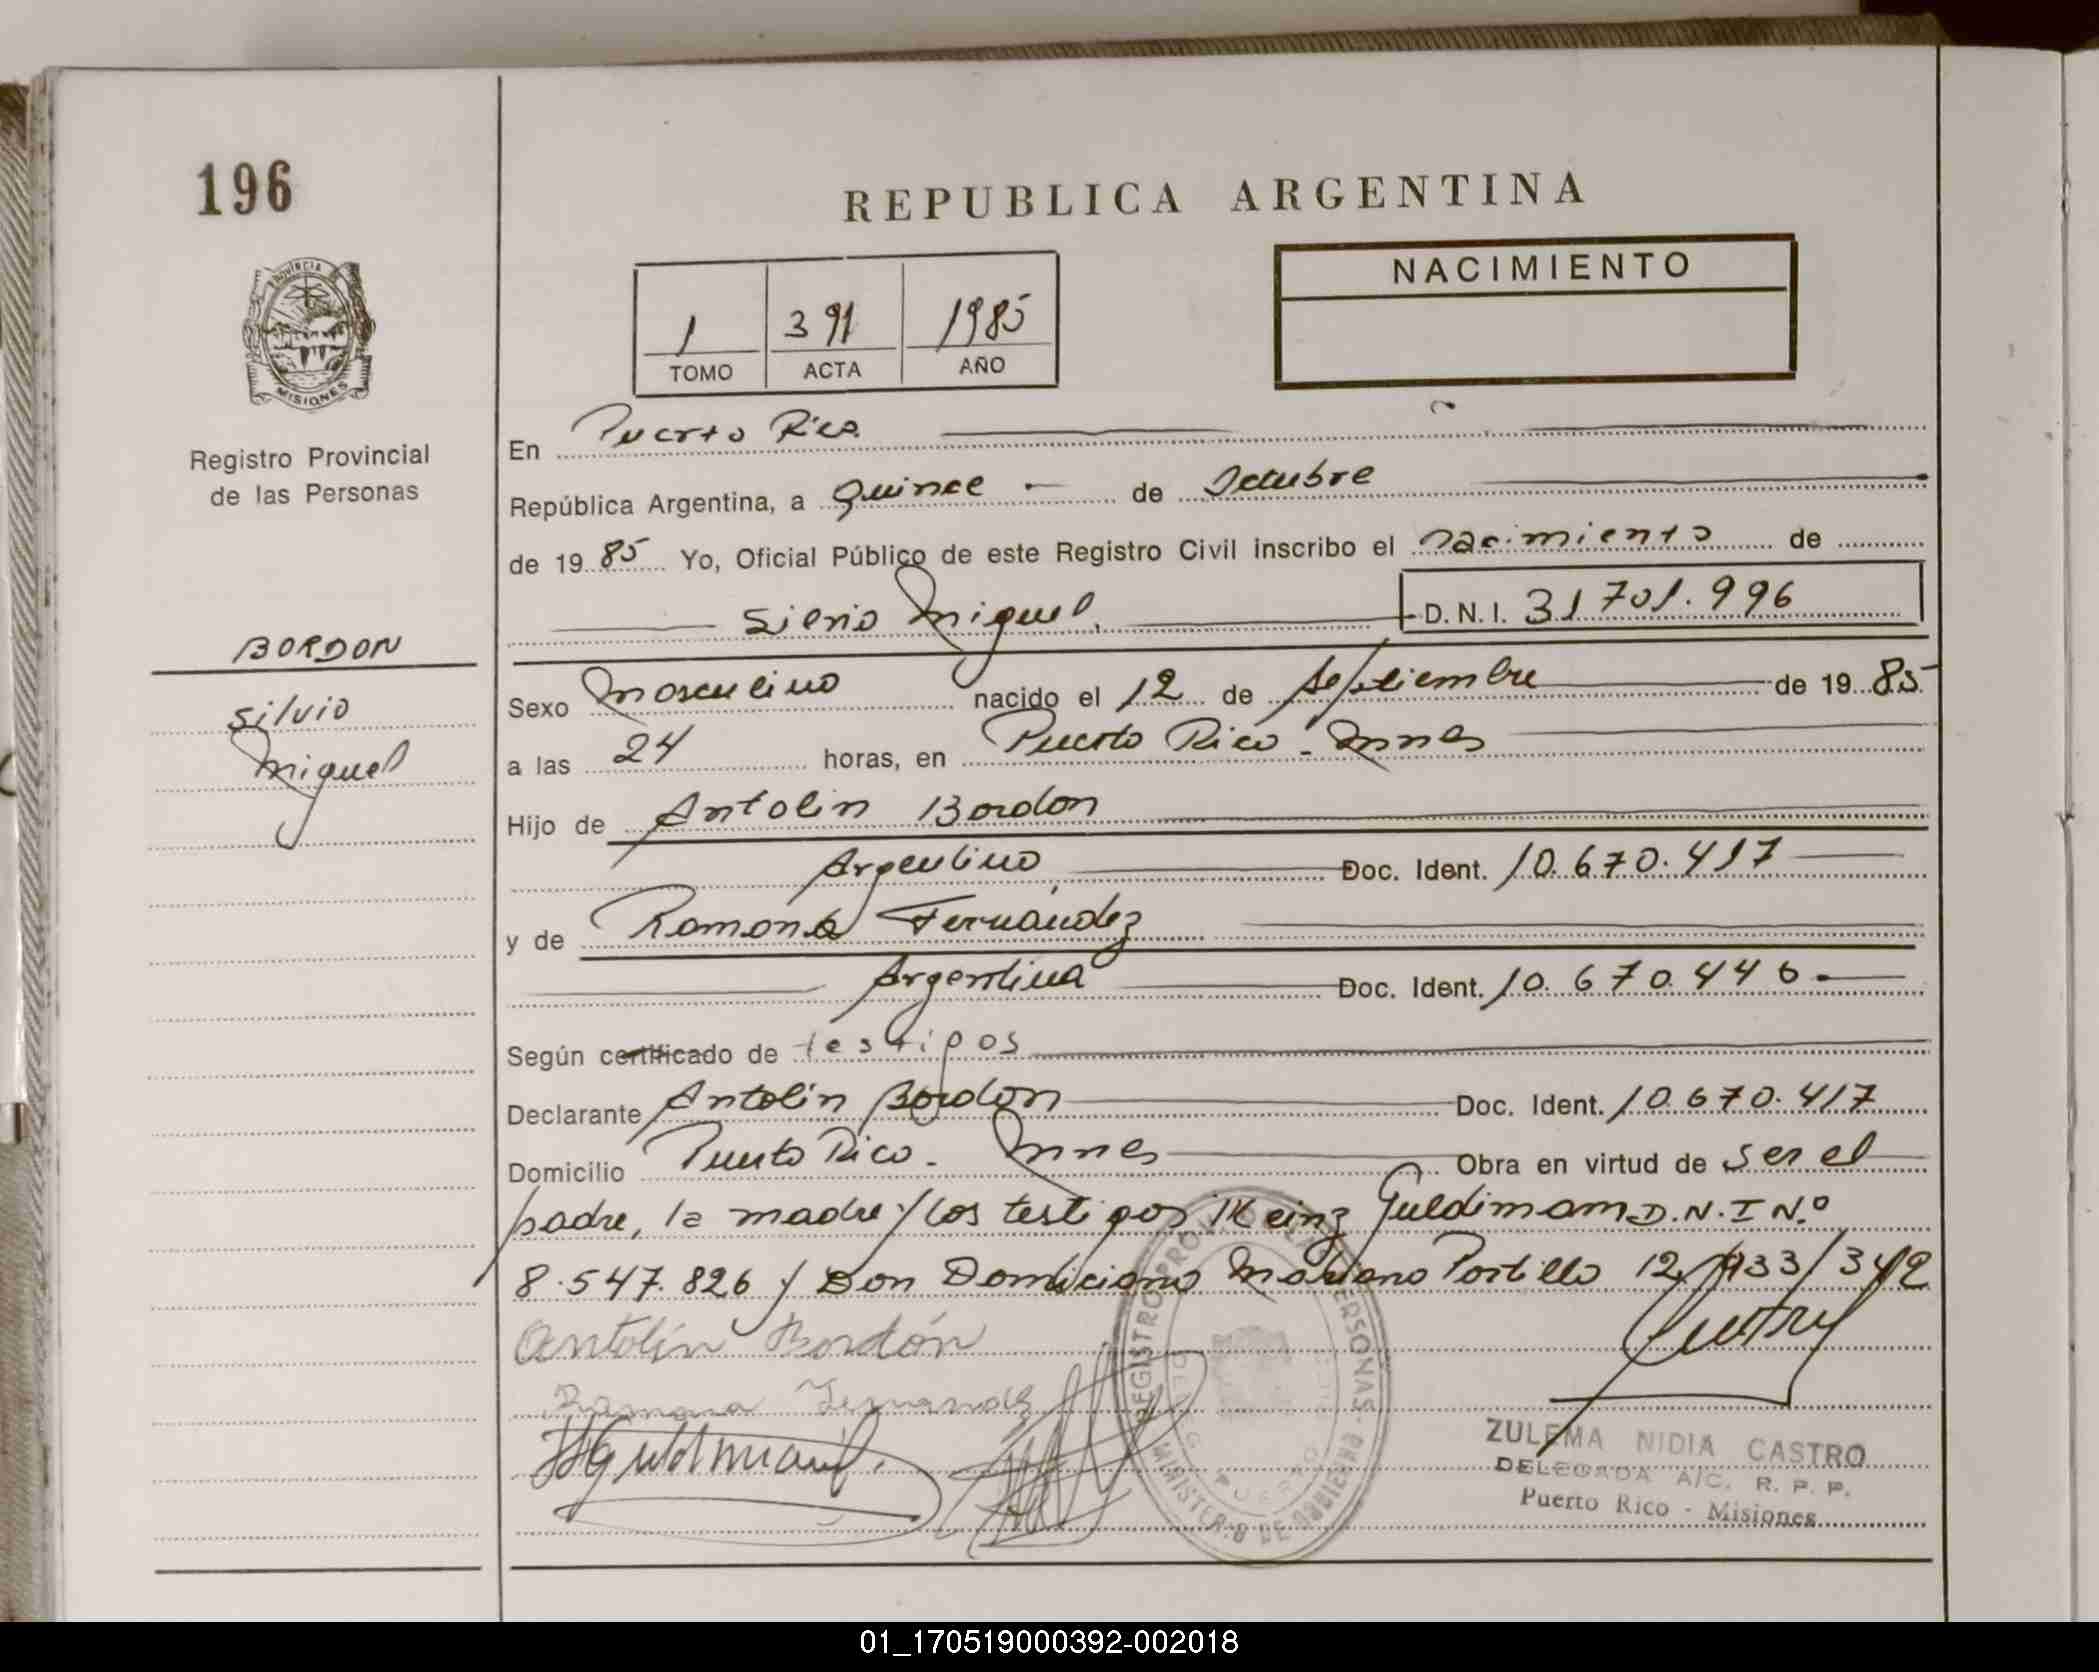 196
PROVINCIA
MISIONES
Registro Provincial
de las Personas
BORDON
Silvio
Miguel
REPUBLICA ARGENTINA
1 391 1985
TOMO ACTA AÑO
NACIMIENTO
En Puerto Rico
República Argentina, a quince de Octubre
de 1985 Yo, Oficial Público de este Registro Civil inscribo el nacimiento de
Silvio Miguel. D.N.I. 31 701.996
Sexo Masculino nacido el 12 de Septiembre de 1985
a las 24 horas, en Puerto Rico - Mnes
Hijo de Antolin Bordon
Argentino, Doc. Ident. 10.670.417
y de Ramona Fernández
Argentina Doc. Ident. 10.670.446
Según certificado de testigos
Declarante Antolin Bordon Doc. Ident. 10.670.417
Domicilio Puerto Rico - Mnes Obra en virtud de ser el
padre, la madre y los testigos Heinz Guldimann D.N.I N.º
8.547.826 y Don Domiciano Mariano Portillo 12/933/342
Antolín Bordón
Ramona Fernandez
HGuldimann
REGISTRO PROV. DE LAS PERSONAS
MINISTERIO DE GOBIERNO
ZULEMA NIDIA CASTRO
DELEGADA A/C. R. P. P.
Puerto Rico - Misiones
01_170519000392-002018